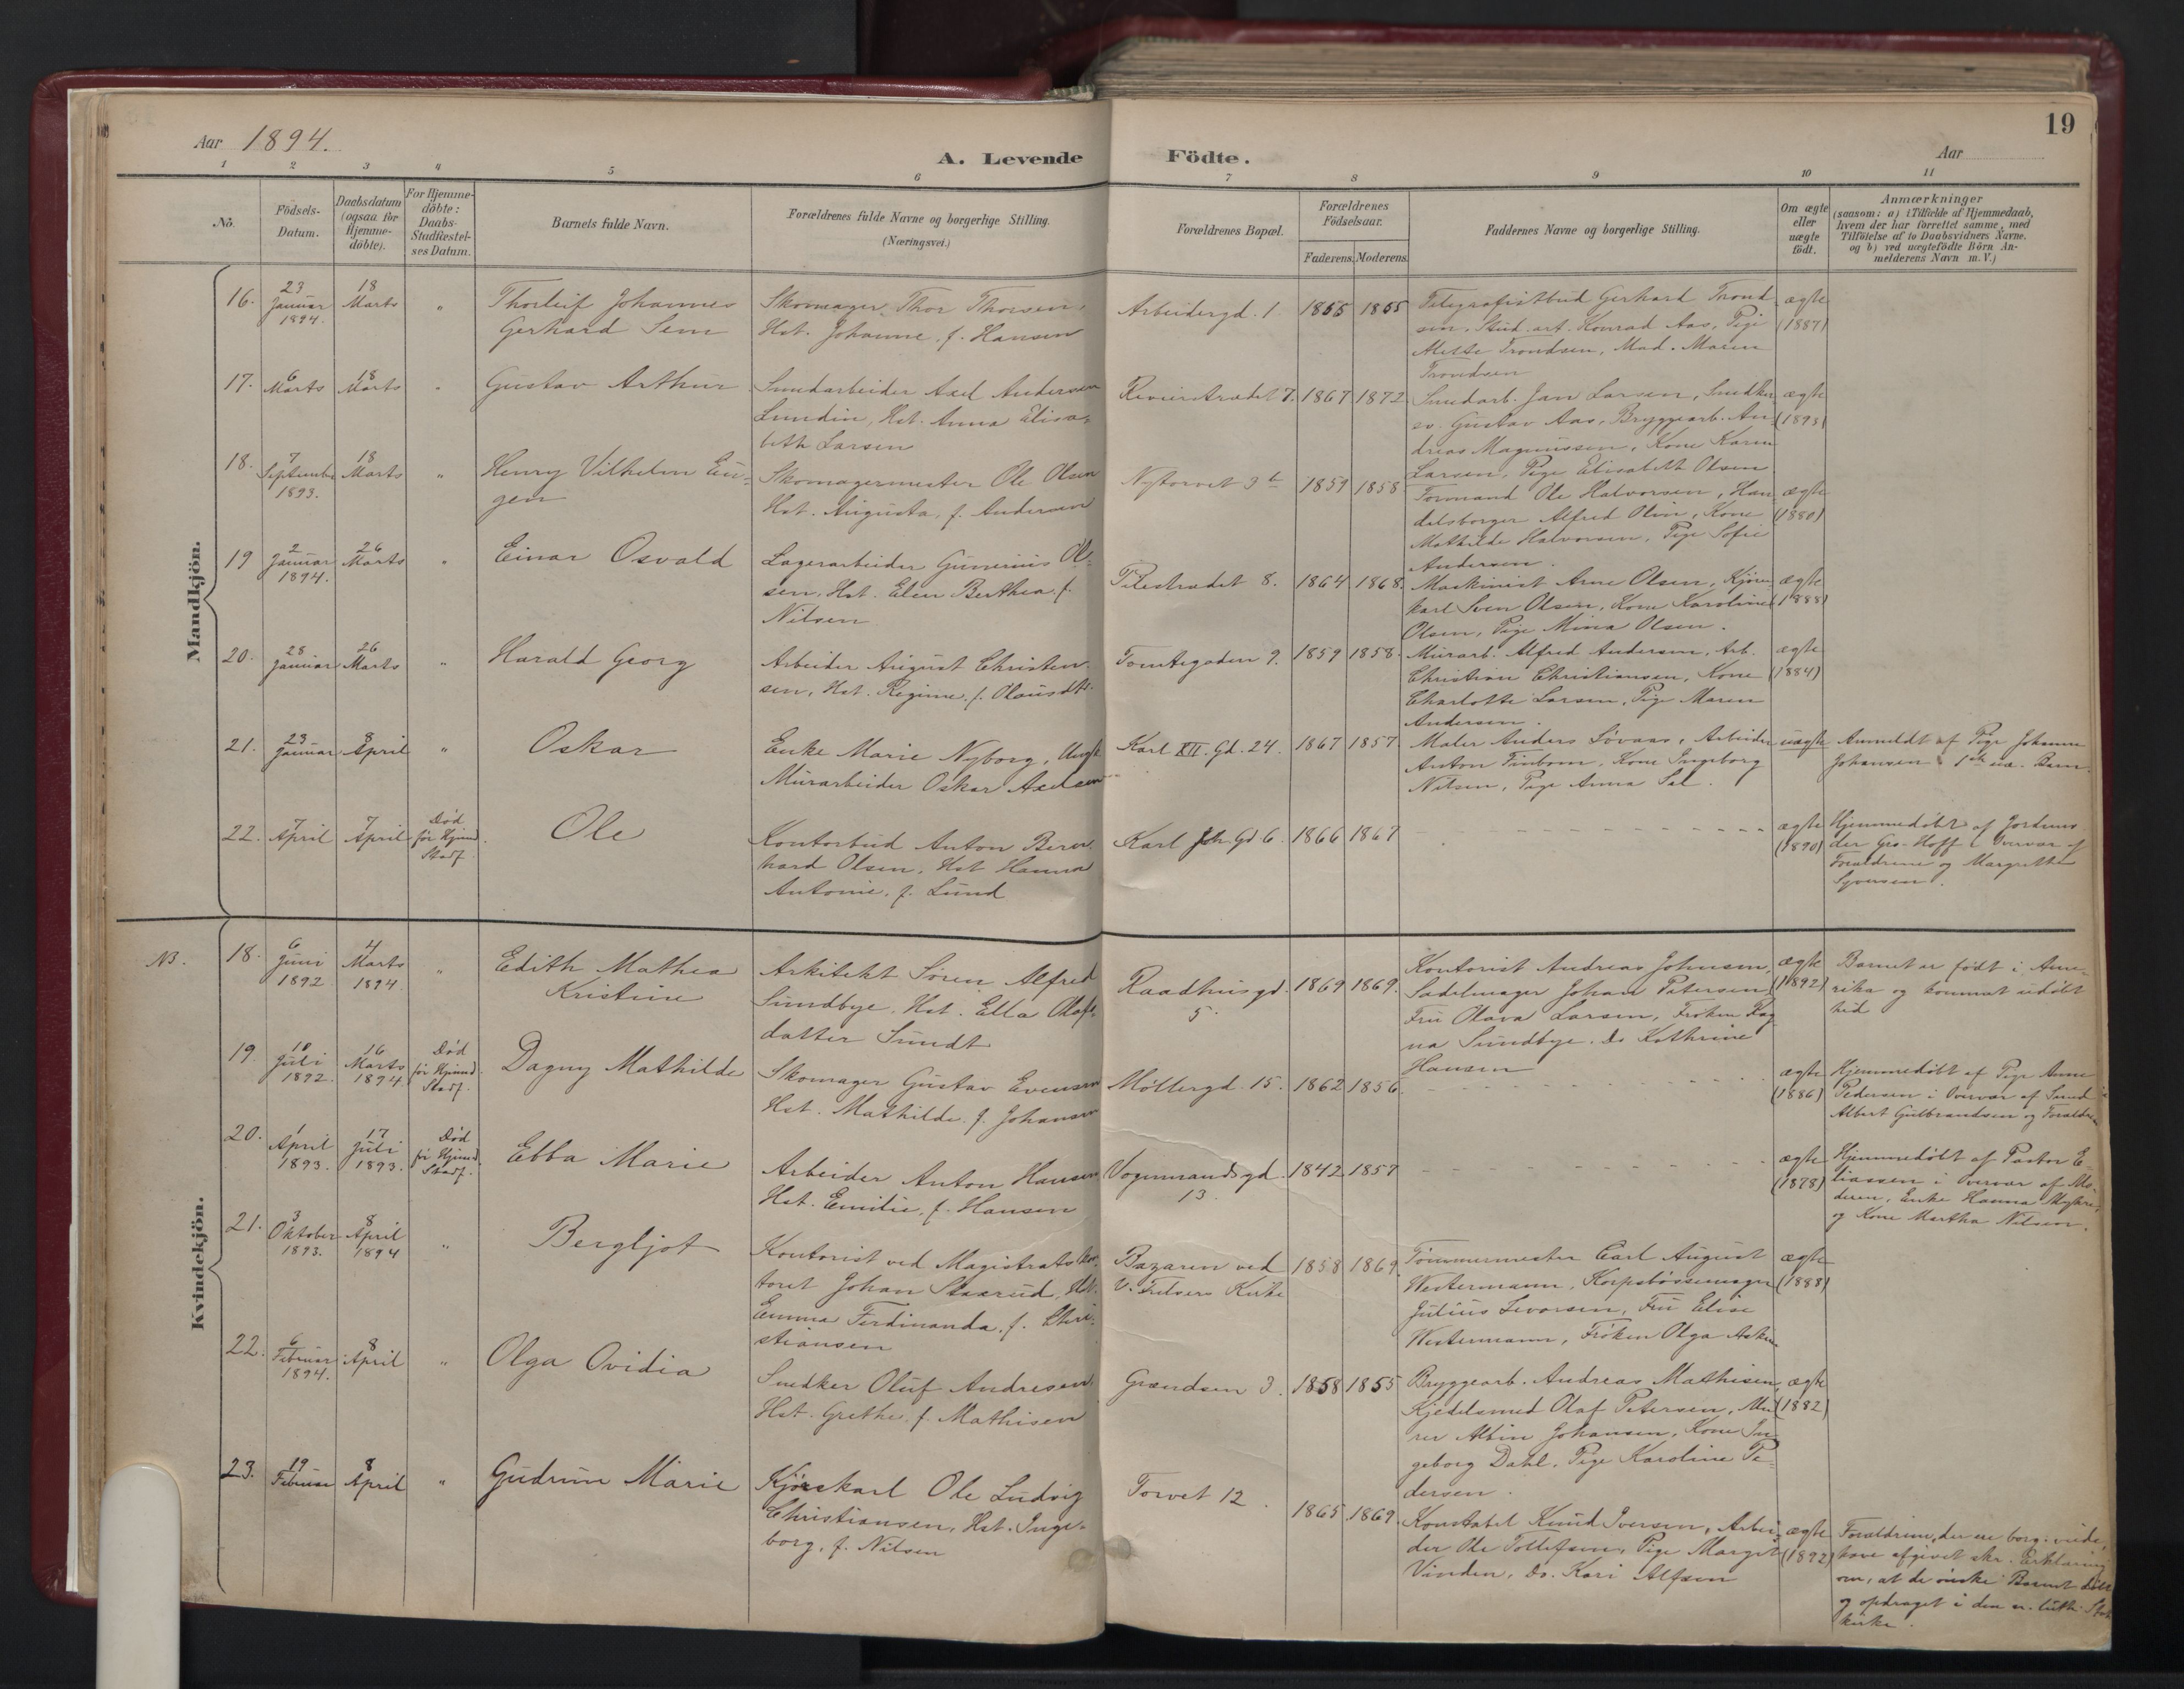 19
Aar 1894.
A. Levende Födte.
Aar
1 2 3 4 5 6 7 8 9 10 11
No.
Födsels-
Datum.
Daabsdatum
(ogsaa for
Hjemme-
döbte).
For Hjemme-
döbte:
Daabs-
Stadfæstel-
ses Datum.
Barnets fulde Navn.
Forældrenes fulde Navne og borgerlige Stilling.
(Næringsvei.)
Forældrenes Bopæl.
Forældrenes
Födselsaar.
Faderens. Moderens.
Faddernes Navne og borgerlige Stilling.
Om ægte
eller
uægte
födt.
Anmærkninger
(saasom: a) i Tilfælde af Hjemmedaab,
hvem der har forrettet samme, med
Tilföielse af to Daabsvidners Navne,
og b) ved uægtefödte Börn An-
melderens Navn m. V.)
Mandkjön.
16.
23
Januar
1894.
18
Marts
"
Thorleif Johannes
Gerhard Sem
Skomager Thor Thorsen,
Hst. Johanne f. Hansen
Arbeidergd. 1.
1855 1865
Telegrafistbud Gerhard Trond
sen, Stud. art. Konrad Aas, Pige
Mette Trondsen, Mad. Maren
Trondsen
ægte
(1887)
17.
6
Marts
18
Marts
"
Gustav Arthur
Smedarbeider Axel Andersen
Lundin, Hst. Anna Elisa-
beth Larsen
Revierstrædet 7.
1867 1872
Smedarb. Jan Larsen, Snedker
sv. Gustav Aas, Bryggearb. An-
dreas Magnussen, Kone Karen
Larsen, Pige Elisabeth Olsen
ægte
(1893)
18.
7
September
1893.
18
Marts
"
Henry Vilhelm Eu-
gen
Skomagermester Ole Olsen
Hst. Augusta, f. Andersen
Nytorvet 9
1859 1858
Formand Ole Halvorsen, Han
delsborger Alfred Olsen, Kone
Mathilde Halvorsen, Pige Sofie
Andersen.
ægte
(1880)
19
2
Januar
1894.
26
Marts
"
Einar Osvald
Lagerarbeider Gunerius Ol-
sen, Hst. Elen Berthea f.
Nilsen
Pilestrædet 8.
1864 1868.
Maskinist Arne Olsen, Kjøre
karl Sven Olsen, Kone Karoline
Olsen, Pige Mina Olsen.
ægte
(1888)
20.
28
Januar
26
Marts
"
Harald Georg
Arbeider August Christen-
sen, Hst. Regine, f. Olausdtr.
Tomtegaden 9.
1859 1858.
Murarb. Alfred Andersen, Arb.
Christian Christiansen, Kone
Charlotte Larsen, Pige Maren
Andersen.
ægte
(1884)
21.
23
Januar
8
April
"
Oskar
Enke Marie Nyborg, Ungk
Murarbeider Oskar Axelsen
Karl XII. Gd. 24.
1867 1857.
Maler Anders Løvaas, Arbeider
Anton Finbom, Kone Ingeborg
Nilsen, Pige Anna Sal.
uægte
Anmeldt af Pige Johanne
Johansen 1ste uæ. Barn.
22.
7
April
7
April
Død
før Hjemd.
Stadf.
Ole
Kontorbud Anton Bern-
hard Olsen, Hst Hanna
Antonie, f. Lund
Karl Joh. Gd 6.
1866 1867
ægte
(1890)
Hjemmedøbt af Jordmo-
der Gro Hoff i Overvær af
Forældrene og Margrethe
Syversen.
Kvindekjön.
NB.
18.
6
Juni
1892
4
Marts
1894.
"
Edith Mathea
Kristine
Arkitekt Søren Alfred
Sundbye, Hst. Ella Olafs-
datter Sundt
Raadhusgd.
5.
1869 1869.
Kontorist Andreas Johnsen,
Sadelmager Johan Petersen,
Fru Olava Larsen, Frøken Rag
na Sundbye, Do Kathrine
Hansen
ægte
(1892)
Barnet er født i Ame-
rika og kommet udøbt
hid
19.
18
Juli
1892.
16
Marts
1894.
Død
før Hjemd.
Stadf.
Dagny Mathilde
Skomager Gustav Evensen
Hst. Mathilde f. Johansen
Møllergd. 15.
1862 1856.
ægte
(1886)
Hjemmedøbt af Pige Anne
Pedersen i Overvær af Smed
Albert Gulbrandsen og Forældre
20.
1
April
1893.
17
Juli
1893.
Død
før Hjemd.
Stadf.
Ebba Marie
Arbeider Anton Hansen
Hst. Emilie, f. Hansen
Vognmandsgd.
13.
1842 1857
ægte
(1878)
Hjemmedøbt af Pastor E-
liassen i Overvær af Mo-
deren, Enke Hanna
og Kone Martha Nilsen.
21.
3
Oktober
1893.
8
April
1894
"
Bergljot
Kontorist ved Magistratskon-
toret Johan Staarud, Hst.
Emma Ferdinanda, f. Chri-
stiansen
Bazaren ved
V. Frelsers Kirke
1858 1869.
Tømmermester Carl August
Westermann, Korpsbøssemager
Julius Sevorsen, Fru Elise
Westermann, Frøken Olga Asken
ægte
(1888)
22.
6
Februar
1894.
8
April
"
Olga Ovidia
Snedker Oluf Andresen
Hst. Grethe f. Mathisen
Grændsen 3.
1858 1855
Bryggearb. Andreas Mathisen,
Kjedelsmed Olaf Petersen, Mu
rer Albin Johansen, Kone In-
geborg Dahl, Pige Karoline Pe-
dersen.
ægte
(1882)
23.
19
Februar
8
April
"
Gudrun Marie
Kjørekarl Ole Ludvig
Christiansen, Hst. Inge-
borg, f. Nilsen
Torvet 12.
1865 1869.
Konstabel Knud Iversen, Arbei-
der Ole Tollefsen, Pige Margit
Vinden, Do. Kari Alfsen
ægte
(1892)
Forældrene, der ere borg. viede,
have afgivet skr. Erklæring
om, at de ønske Barnet døbt
og opdraget i den ev. luth. Stats
kirke.